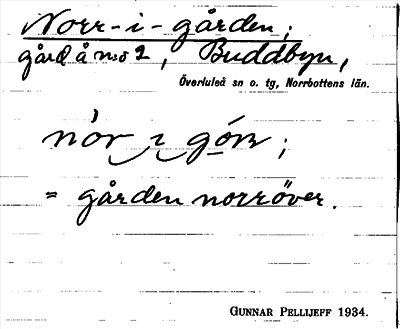 Norr-i-gården;
gård å nso 2, Buddbyn,
Överluleå sn o. tg, Norrbottens län.
nòr i gór;
= gården norröver.
GUNNAR PELLIJEFF 1934.